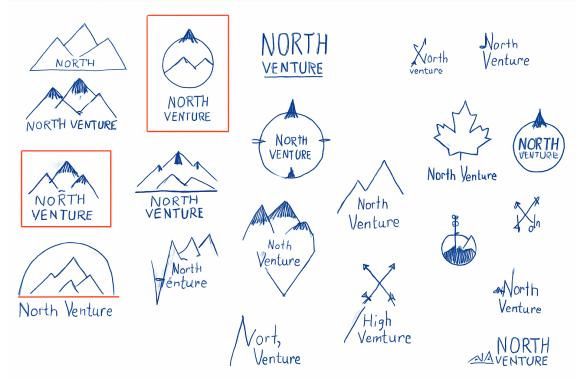 NORTH
NORTH VENTURE
NORTH
VENTURE
North Venture
NORTH
VENTURE
NORTH
VENTURE
North
enture
NORTH
VENTURE
North
VENTURE
Noth
Venture
Nort,
Venture
North
Venture
High
Vemture
North
venture
North
Venture
North Venture
NORTH
VENTURE
North
Venture
NORTH
VENTURE